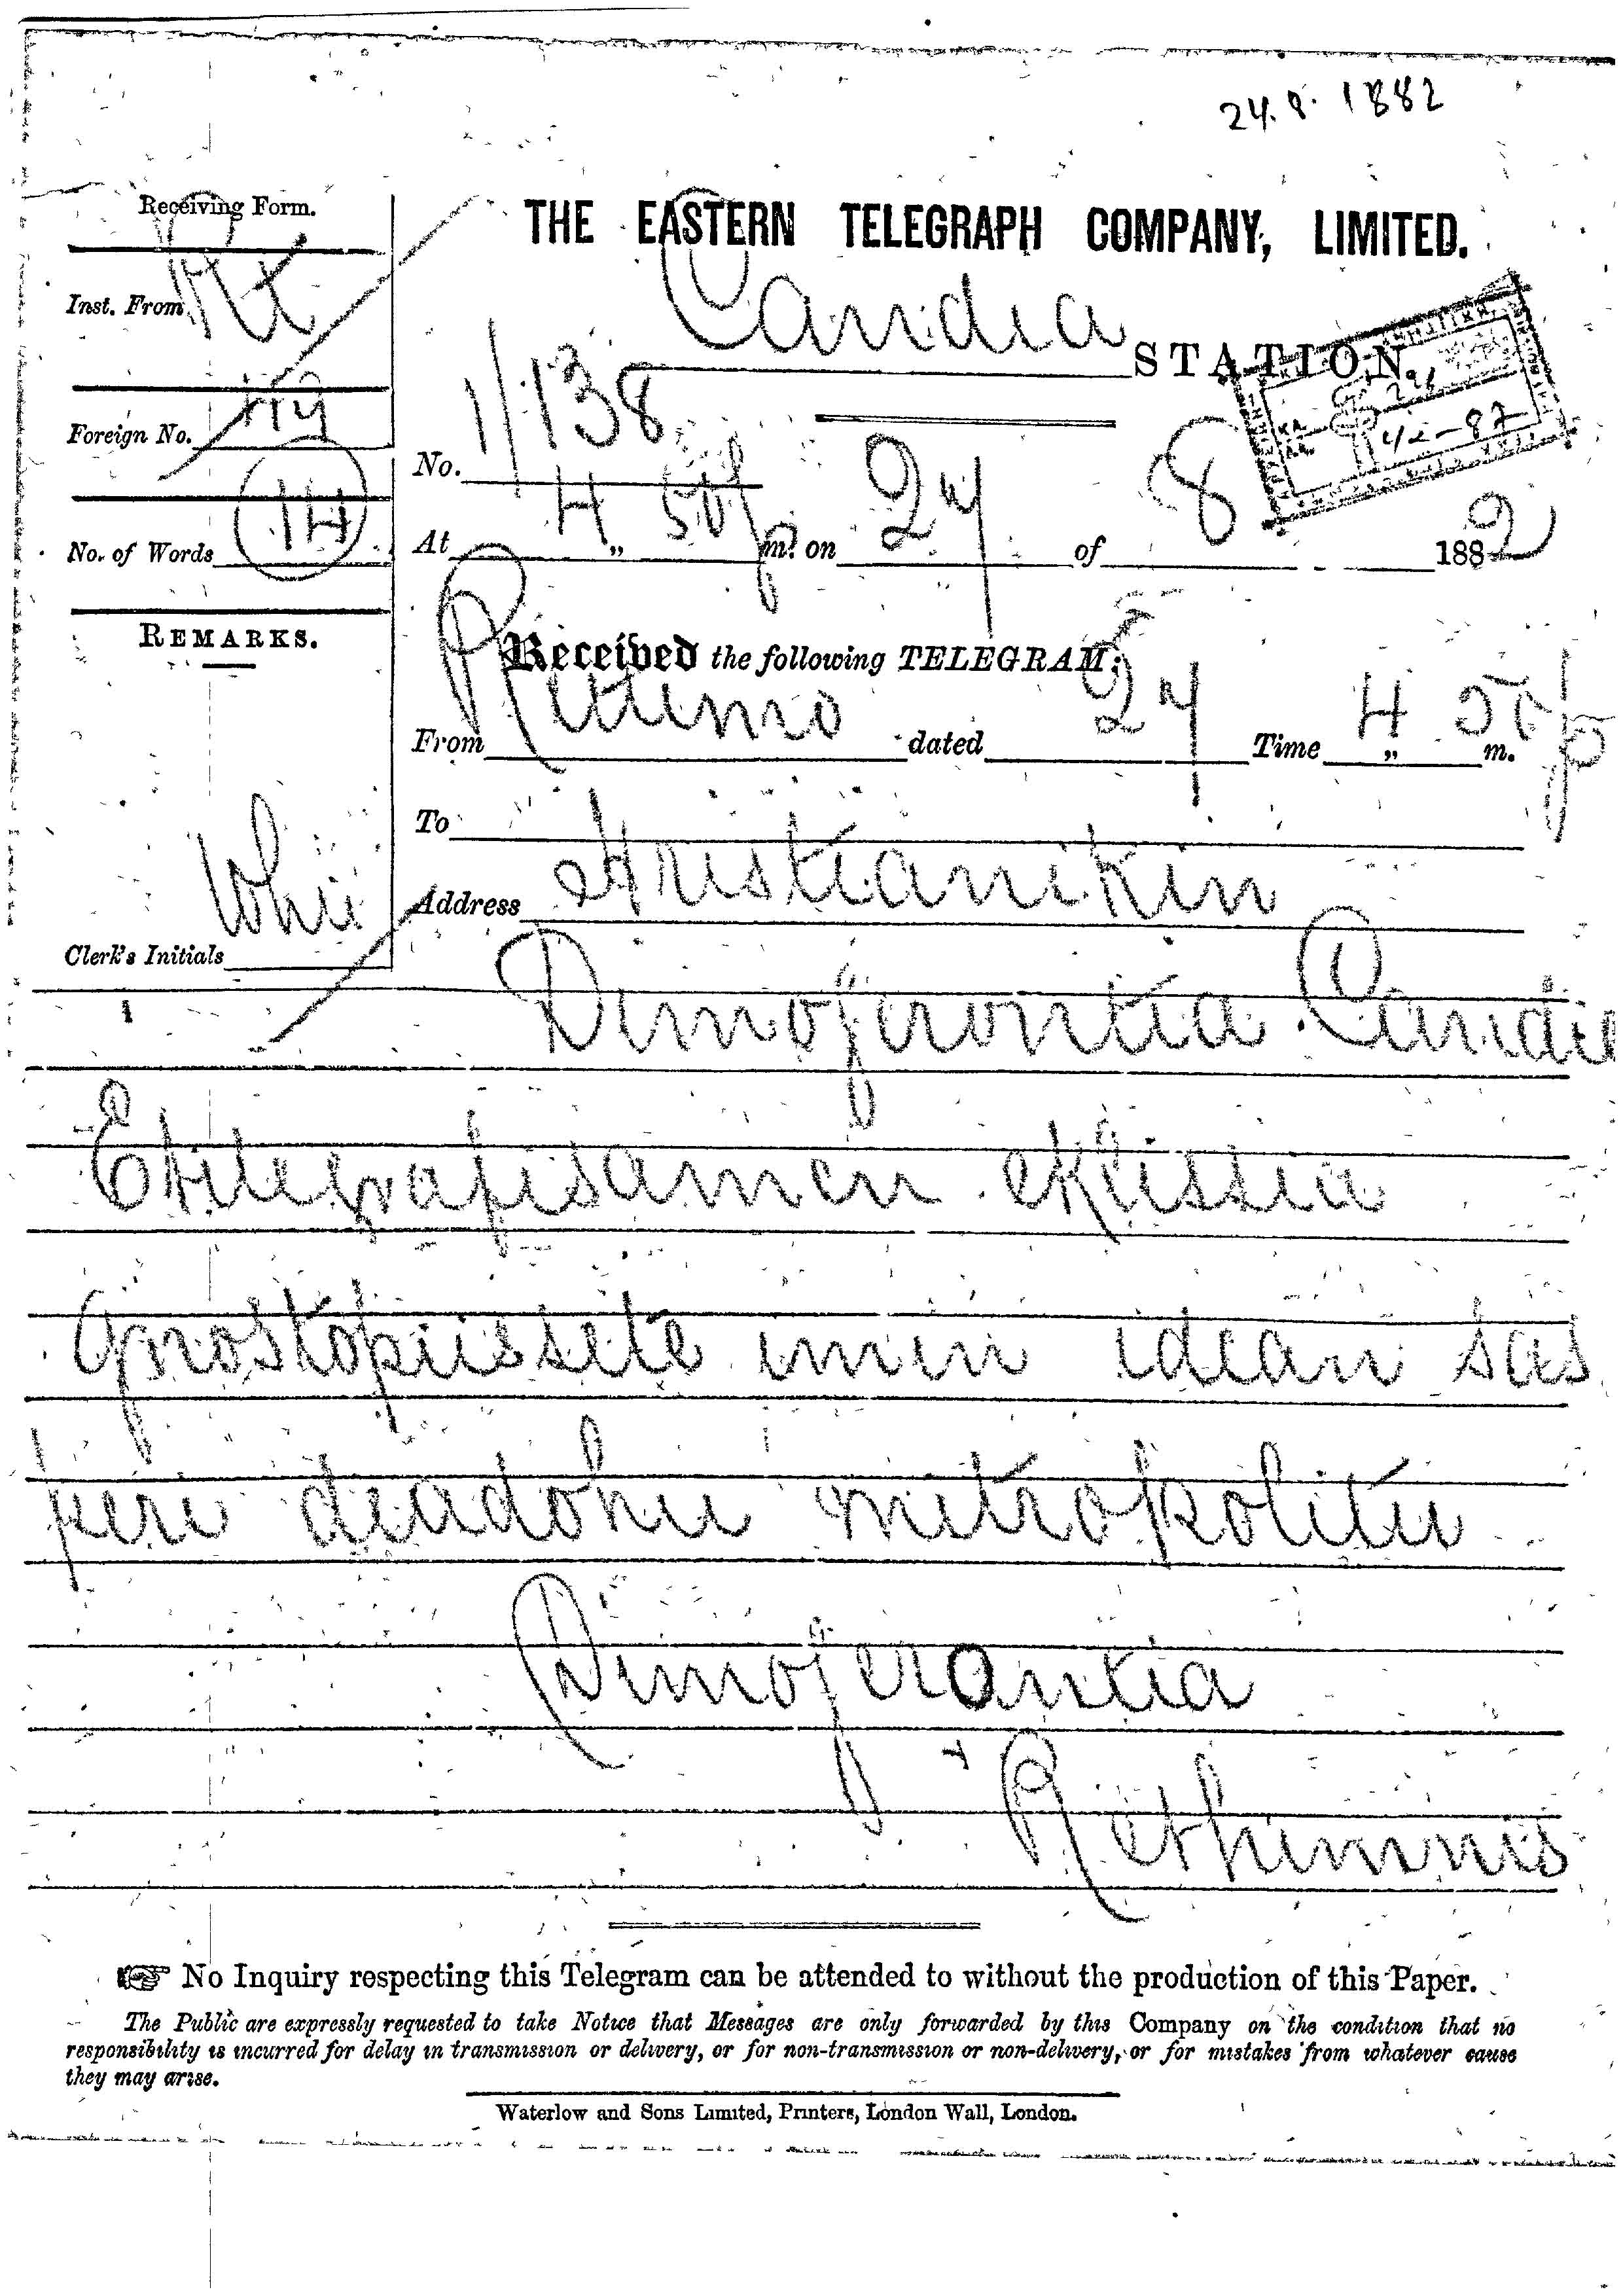 24.8.1882
Receiving Form.
THE EASTERN TELEGRAPH COMPANY, LIMITED.
Inst. From
Candia STATION.
Foreign No.
No. 1/138
No. of Words 14
At 4 „ 50 p m. on 24 of 8 1882
REMARKS.
Received the following TELEGRAM:
From Rettimo dated 24 Time 4 „ 50 m. p
To
Address Hristianikin
Clerk's Initials
Dimogerontia Candia
Etilegrafisamen eklissia
gnostopiissete imin idean sas
peri diadohu mitropolitu
Dimogerontia
Rethimnis
No Inquiry respecting this Telegram can be attended to without the production of this Paper.
The Public are expressly requested to take Notice that Messages are only forwarded by this Company on the condition that no
responsibility is incurred for delay in transmission or delivery, or for non-transmission or non-delivery, or for mistakes from whatever cause
they may arise.
Waterlow and Sons Limited, Printers, London Wall, London.